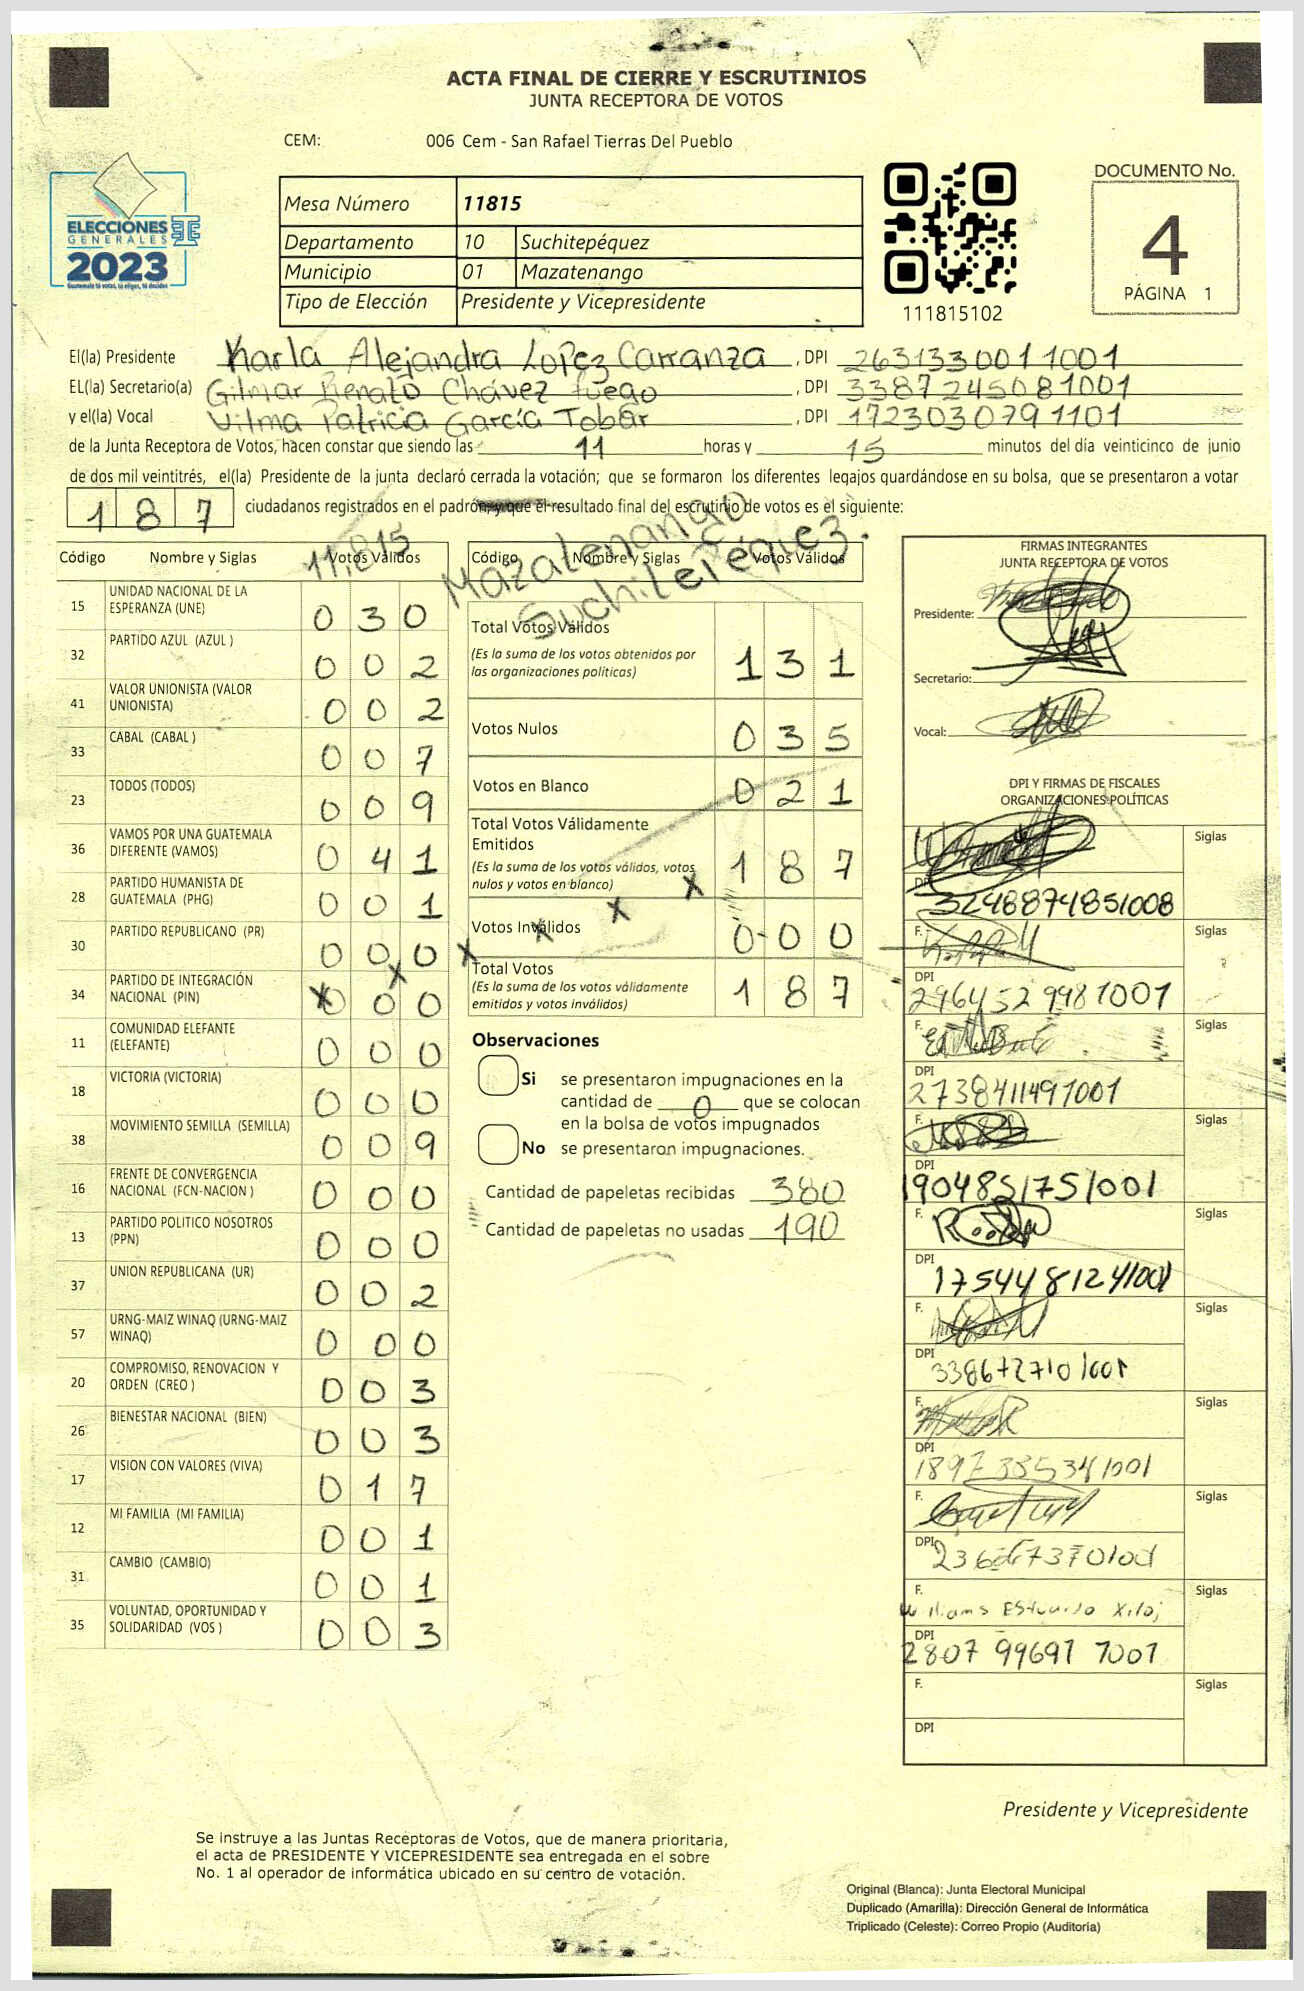 ACTA FINAL DE CIERRE Y ESCRUTINIOS
JUNTA RECEPTORA DE VOTOS
CEM: 006 Cem - San Rafael Tierras Del Pueblo
ELECCIONES
GENERALES
2023
Guatemala tú votas, tú eliges, tú decides
Mesa Número 11815
Departamento 10 Suchitepéquez
Municipio 01 Mazatenango
Tipo de Elección Presidente y Vicepresidente
111815102
DOCUMENTO No.
4
PÁGINA 1
El(la) Presidente Karla Alejandra Lopez Carranza, DPI 2631330011001
EL(la) Secretario(a) Gilmar Renato Chávez Fuego, DPI 3387245081001
y el(la) Vocal Vilma Patricia García Tobar, DPI 1723030791101
de la Junta Receptora de Votos, hacen constar que siendo las 11 horas y 15 minutos del día veinticinco de junio
de dos mil veintitrés, el(la) Presidente de la junta declaró cerrada la votación; que se formaron los diferentes legajos guardándose en su bolsa, que se presentaron a votar
187 ciudadanos registrados en el padrón, y que el resultado final del escrutinio de votos es el siguiente:
11,815
Mazatenango
Suchitepéquez.
Código Nombre y Siglas Votos Válidos
15 UNIDAD NACIONAL DE LA ESPERANZA (UNE) 030
32 PARTIDO AZUL (AZUL ) 002
41 VALOR UNIONISTA (VALOR UNIONISTA) 002
33 CABAL (CABAL ) 007
23 TODOS (TODOS) 009
36 VAMOS POR UNA GUATEMALA DIFERENTE (VAMOS) 041
28 PARTIDO HUMANISTA DE GUATEMALA (PHG) 001
30 PARTIDO REPUBLICANO (PR) 000
34 PARTIDO DE INTEGRACIÓN NACIONAL (PIN) 000
11 COMUNIDAD ELEFANTE (ELEFANTE) 000
18 VICTORIA (VICTORIA) 000
38 MOVIMIENTO SEMILLA (SEMILLA) 009
16 FRENTE DE CONVERGENCIA NACIONAL (FCN-NACION ) 000
13 PARTIDO POLITICO NOSOTROS (PPN) 000
37 UNION REPUBLICANA (UR) 002
57 URNG-MAIZ WINAQ (URNG-MAIZ WINAQ) 000
20 COMPROMISO, RENOVACION Y ORDEN (CREO ) 003
26 BIENESTAR NACIONAL (BIEN) 003
17 VISION CON VALORES (VIVA) 017
12 MI FAMILIA (MI FAMILIA) 001
31 CAMBIO (CAMBIO) 001
35 VOLUNTAD, OPORTUNIDAD Y SOLIDARIDAD (VOS ) 003
Código Nombre y Siglas Votos Válidos
Total Votos Válidos 131
(Es la suma de los votos obtenidos por
las organizaciones políticas)
Votos Nulos 035
Votos en Blanco 021
Total Votos Válidamente
Emitidos 187
(Es la suma de los votos válidos, votos
nulos y votos en blanco)
Votos Inválidos 0-00
Total Votos 187
(Es la suma de los votos válidamente
emitidos y votos inválidos)
Observaciones
Si se presentaron impugnaciones en la
cantidad de 0 que se colocan
en la bolsa de votos impugnados
No se presentaron impugnaciones.
Cantidad de papeletas recibidas 380
Cantidad de papeletas no usadas 190
FIRMAS INTEGRANTES
JUNTA RECEPTORA DE VOTOS
Presidente:
Secretario:
Vocal:
DPI Y FIRMAS DE FISCALES
ORGANIZACIONES POLÍTICAS
Siglas
DPI 3248874851008
F. Siglas
DPI 2964529981001
F. Siglas
DPI 2738411491001
F. Siglas
DPI 1904851751001
F. Siglas
DPI 1754481241001
F. Siglas
DPI 3386727101001
F. Siglas
DPI 1897335341001
F. Siglas
DPI
F. Williams Estuardo Xiloj Siglas
DPI 2807 99697 7001
F. Siglas
DPI
Presidente y Vicepresidente
Se instruye a las Juntas Receptoras de Votos, que de manera prioritaria,
el acta de PRESIDENTE Y VICEPRESIDENTE sea entregada en el sobre
No. 1 al operador de informática ubicado en su centro de votación.
Original (Blanca): Junta Electoral Municipal
Duplicado (Amarilla): Dirección General de Informática
Triplicado (Celeste): Correo Propio (Auditoría)